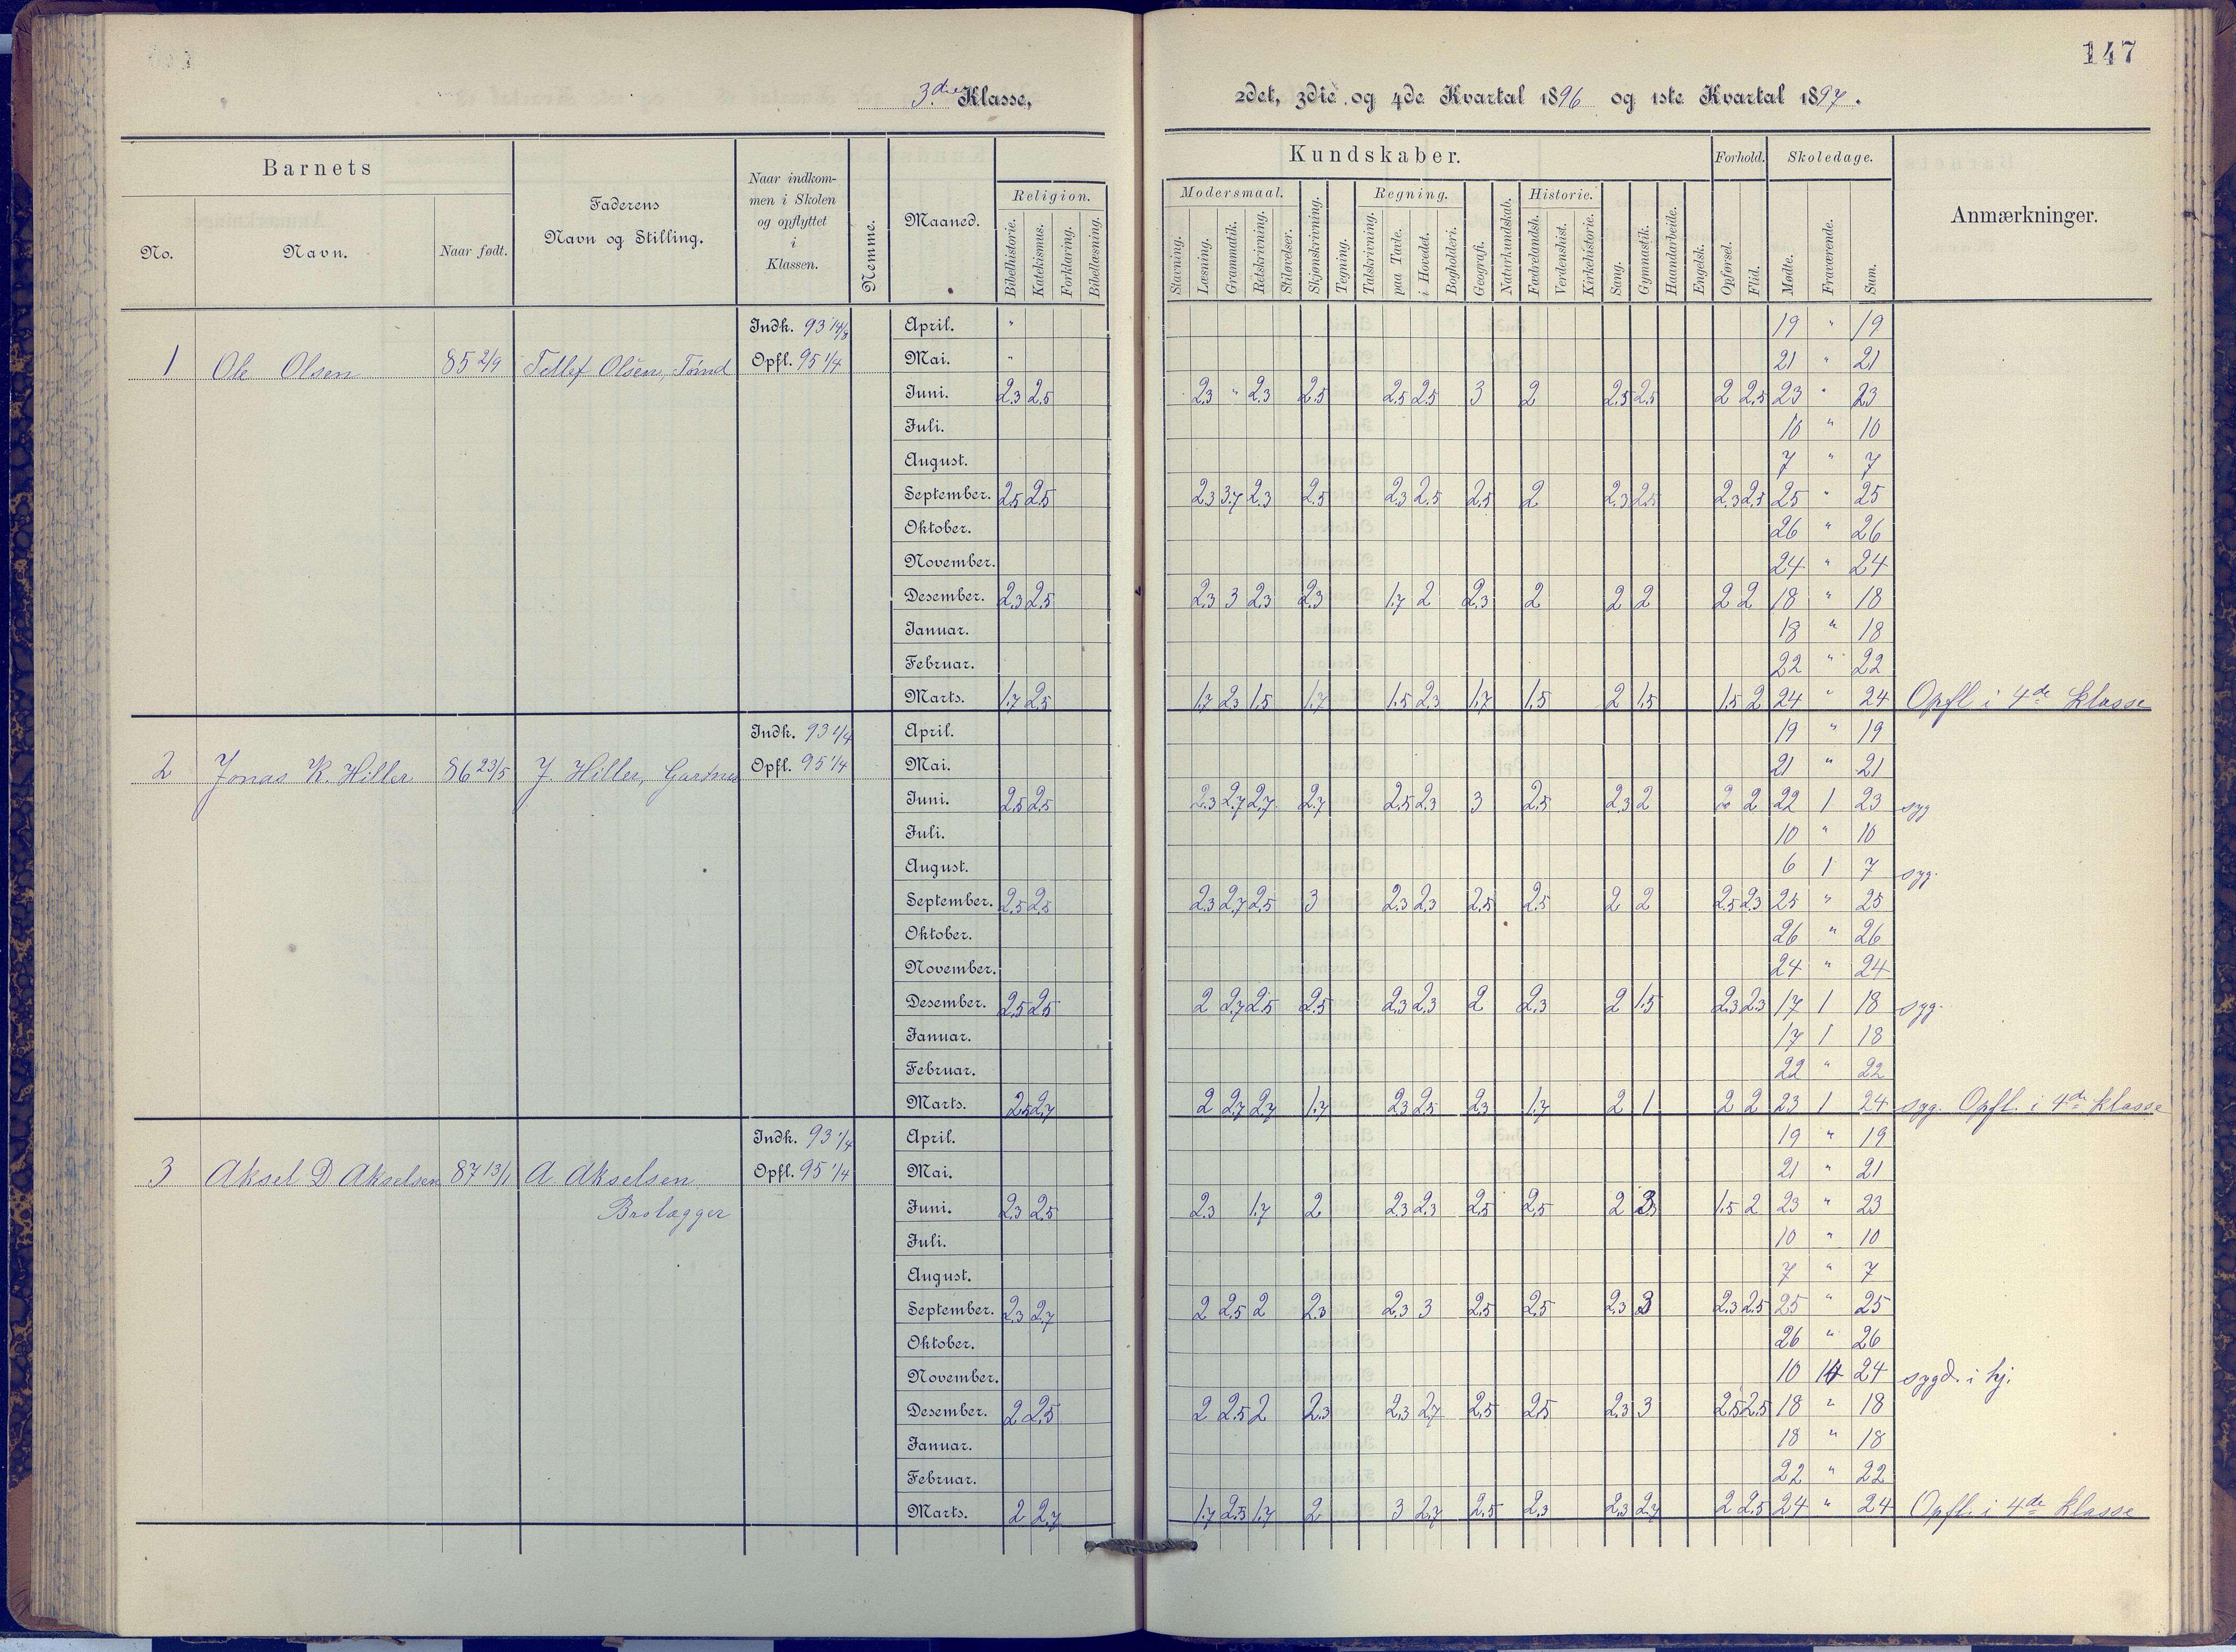 147
3die Klasse, 2det, 3die og 4de Kvartal 1896 og 1ste Kvartal 1897.
Barnets
No. Navn. Naar født.
Faderens
Navn og Stilling.
Naar indkom-
men i Skolen
og opflyttet
i
Klassen.
Nemme.
Maaned.
Religion.
Bibelhistorie. Katekismus. Forklaring. Bibellæsning.
Kundskaber.
Modersmaal.
Stavning. Læsning. Grammatik. Retskrivning. Stiløvelser.
Skjønskrivning. Tegning.
Regning.
Talskrivning. paa Tavle. i Hovedet. Bogholderi.
Geografi. Naturkundskab.
Historie.
Fædrelandsh. Verdenshist. Kirkehistorie.
Sang. Gymnastik. Haandarbeide. Engelsk.
Forhold.
Opførsel. Flid.
Skoledage.
Mødte. Fraværende. Sum.
Anmærkninger.
Indk. 93 14/8 April. " 19 " 19
1 Ole Olsen 85 2/9 Tellef Olsen, Tømd Opfl. 95 1/4 Mai. " 21 " 21
Juni. 2.3 2.5 2.3 " 2.3 2.5 2.5 2.5 3 2 2.5 2.5 2 2.5 23 " 23
Juli. 10 " 10
August. 7 " 7
September. 2.5 2.5 2.3 3.7 2.3 2.5 2.3 2.5 2.5 2 2.3 2.5 2.3 2.5 25 " 25
Oktober. 26 " 26
November. 24 " 24
Desember. 2.3 2.5 2.3 3 2.3 2.3 1.7 2 2.3 2 2 2 2 2 18 " 18
Januar. 18 " 18
Februar. 22 " 22
Marts. 1.7 2.5 1.7 2.3 1.5 1.7 1.5 2.3 1.7 1.5 2 1.5 1.5 2 24 " 24 Opfl i 4de klasse
Indk. 93 1/4 April. 19 " 19
2 Jonas K. Hiller 86 23/5 J. Hiller, Gartner Opfl. 95 1/4 Mai. 21 " 21
Juni. 2.5 2.5 2.3 2.7 2.7 2.7 2.5 2.3 3 2.5 2.3 2 2 2 22 1 23 syg
Juli. 10 " 10
August. 6 1 7 syg.
September. 2.5 2.5 2.3 2.7 2.5 3 2.3 2.3 2.5 2.5 2 2 2.5 2.3 25 " 25
Oktober. 26 " 26
November. 24 " 24
Desember. 2.5 2.5 2 2.7 2.5 2.5 2.3 2.3 2 2.3 2 1.5 2.3 2.3 17 1 18 syg.
Januar. 17 1 18
Februar. 22 " 22
Marts. 2.5 2.7 2 2.7 2.7 1.7 2.3 2.5 2.3 1.7 2 1 2 2 23 1 24 syg. Opfl. i 4de klasse
Indk. 93 1/4 April. 19 " 19
3 Aksel D Akselsen 87 13/1 A Akselsen Opfl. 95 1/4 Mai. 21 " 21
Brolægger Juni. 2.3 2.5 2.3 1.7 2 2.3 2.3 2.5 2.5 2 3 1.5 2 23 " 23
Juli. 10 " 10
August. 7 " 7
September. 2.3 2.7 2 2.5 2 2.3 2.3 3 2.5 2.5 2.3 3 2.3 2.5 25 " 25
Oktober. 26 " 26
November. 10 14 24 sygd. i hj.
Desember. 2 2.5 2 2.5 2 2.3 2.3 2.7 2.5 2.5 2.3 3 2.5 2.5 18 " 18
Januar. 18 " 18
Februar. 22 " 22
Marts. 2 2.7 1.7 2.5 1.7 2 3 2.7 2.5 2.3 2.3 2.7 2 2.5 24 " 24 Opfl. i 4de klasse